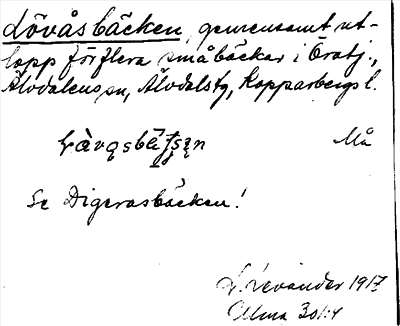 Lövåsbäcken, gemensamt ut-
lopp för flera småbäckar i Oratj.,
Älvdalens sn, Älvdalstg, Kopparbergs l.
Må
Se Digeråsbäcken!
L. Levander 1917
Ulma 301:4